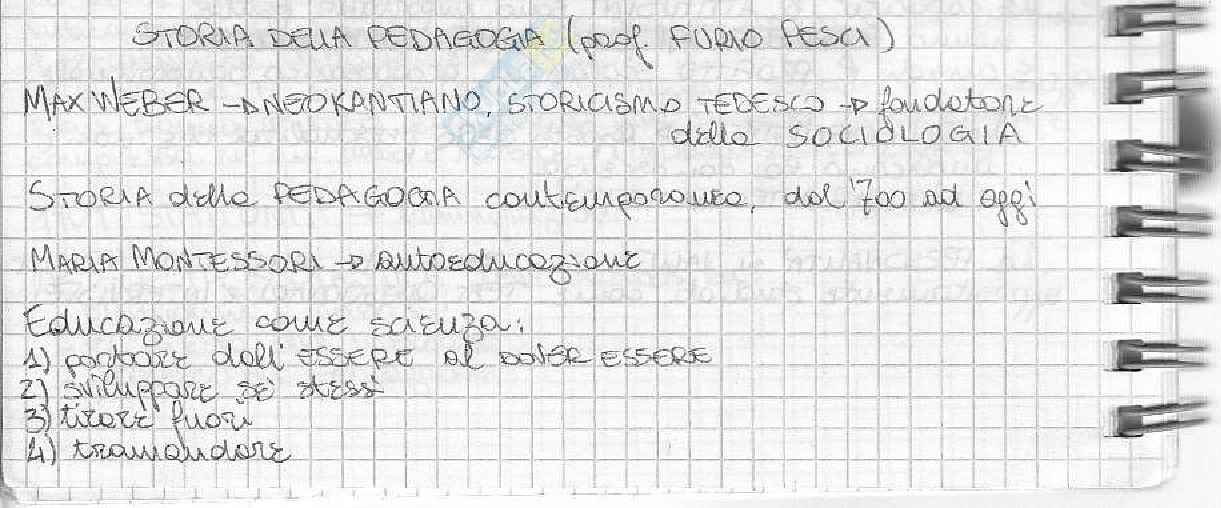 STORIA DELLA PEDAGOGIA (prof. FURIO PESCI)
MAX WEBER → NEOKANTIANO, STORICISMO TEDESCO → fondatore
della SOCIOLOGIA
STORIA della PEDAGOGIA contemporanea, dal '700 ad oggi
MARIA MONTESSORI → autoeducazione
Educazione come scienza:
1) portare dall'ESSERE al DOVER ESSERE
2) sviluppare sé stessi
3) tirare fuori
4) tramandare